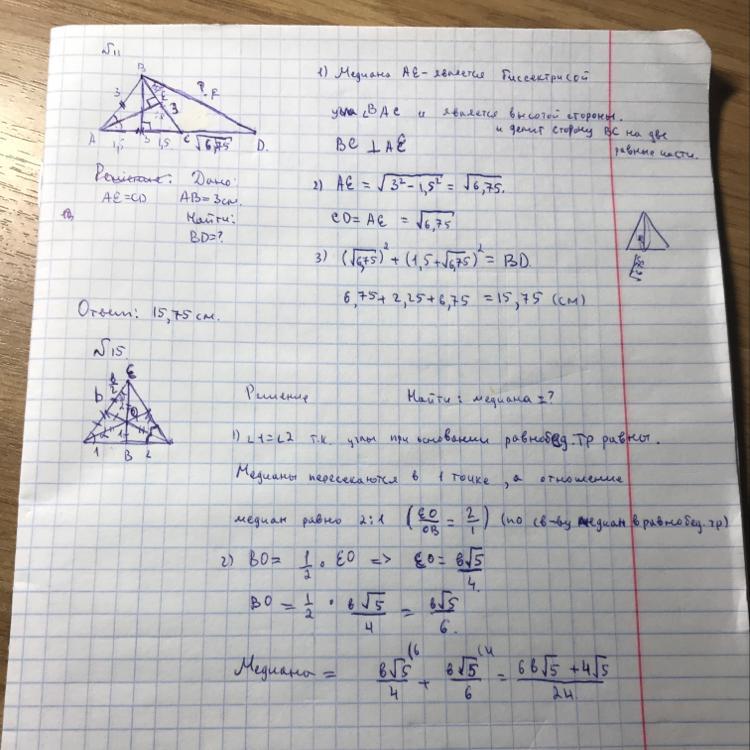 №11
B
3
E
3
P
F
A
1,5
1,5
C
√6,75
D.
Дано:
AE=CD AB=3см.
Найти:
BD=?
Ответ: 15,75 см.
1) Медиана AE- является биссектрисой
угла ∠BAC и является высотой стороны.
и делит сторону BC на две
равные части.
BC ⊥ AE
2) AE = √3²-1,5² = √6,75.
CD=AE = √6,75
3) (√6,75)² + (1,5+√6,75)² = BD.
6,75+2,25+6,75 = 15,75 (см)
№15.
E
b
O
1 B 2
Решение Найти: медиана=?
1) ∠1=∠2 т.к. углы при основании равнобед. тр равны.
Медианы пересекаются в 1 точке, а отношение
медиан равно 2:1 (EO/OB = 2/1) (по св-ву медиан в равнобед. тр)
2) BO = 1/2 · EO => EO = b√5/4.
BO = 1/2 · b√5/4 = b√5/6.
Медиана = b√5/4 (6 + b√5/6 (4 = 6b√5 + 4√5/24